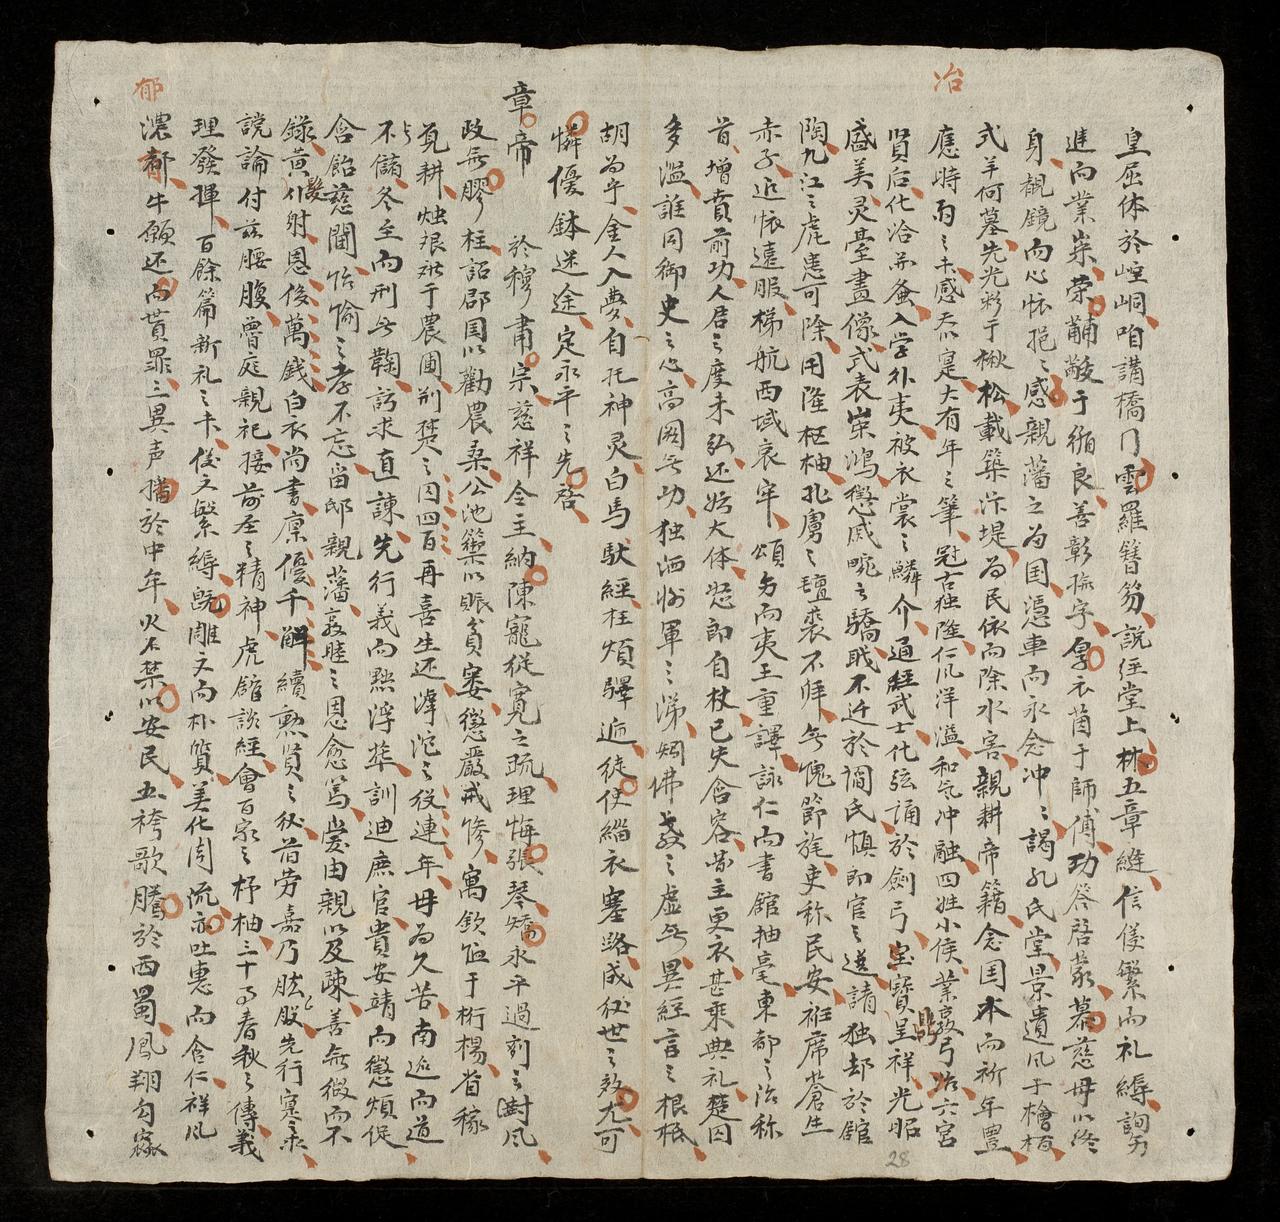 皇屈体於崆峒咱講橋门雲羅簪笏説经堂上林五章縫信侵繁而礼縟詢
進向業崇荣黼黻于循良善彰琉字厚衣茵于師傅功答启蒙慕慈母以终
身覩鏡而心怅挹之感親藩之为国憑車而永念冲之謁孔氏堂景遺凡于檜栢
式羊何墓先光彩于楸松載築汴堤为民依而除水害親耕帝籍念国本而祈年豊
冶
應時雨之未感天以寔大有年之筆冠古独隆仁凡洋溢和气冲融四姓小侯業敦弓冶六宫
贤后化洽而蚕入学外夷被衣裳之鱗介通经武士化弦诵於劍弓宝實呈祥光昭
盛美灵臺畫像式表崇鴻懲戚畹之驕戢不近於阎民慎即官之選請独却於館
陶九江之虎患可除用隆枢柚孔虜之氊裘不拜無愧節旄吏称民安衽席蒼生
赤子近怀遠服梯航西域哀牢頌穷而夷王重譯詠仁而書館抽毫東都之治称
首增賁前功人启之度未弘还妨大体怒郎自杖已失含容萻主更衣甚乘典礼楚囚
多滥誰同御史之心高阁無功独洒州軍之涕烱佛教之虚無異經言之根柢
胡为乎金人入夢自托神灵白馬馱經枉煩驛逓徒使緇衣塞路成秘世之效尤可
憐優鉢迷途定永平之先启
章帝 於穆肅宗慈祥令主納陳寵従寛之疏理悔張琴矯永平過刻之對凡
政無膠柱詔郡国以勸農桑公池籞以賑貧窭懲嚴戒惨寓欽恤于桁楊省稼
覓耕烛艰难于農圃荊楚之囚四百再喜生还滹沱之役連年毋为久苦南巡而道
不儲冬至而刑無鞠訪求直諫先行義而黙浮華訓迪庶官貴安靖而懲煩促
含飴慈闈怡愉之孝不忘留邸親藩敦睦之恩愈篤爱由親以及疎善無微而不
錄黄射恩俊萬錢白衣尚書廪優千斛續勲賢之秘首劳嘉乃肱股先行寔录
説論付兹腰腹曾庭親祀接前圣之精神虎館談經會百家之杼柚三十了春秋之傳義
理發揮百餘篇新礼之卡侵文繁縟既雕文而朴質美化周流亦吐惠而含仁祥凡
郁
濃郁牛願还而貰罪三異声揚於中年火不禁以安民五袴歌騰於西蜀鳳翔勾
28